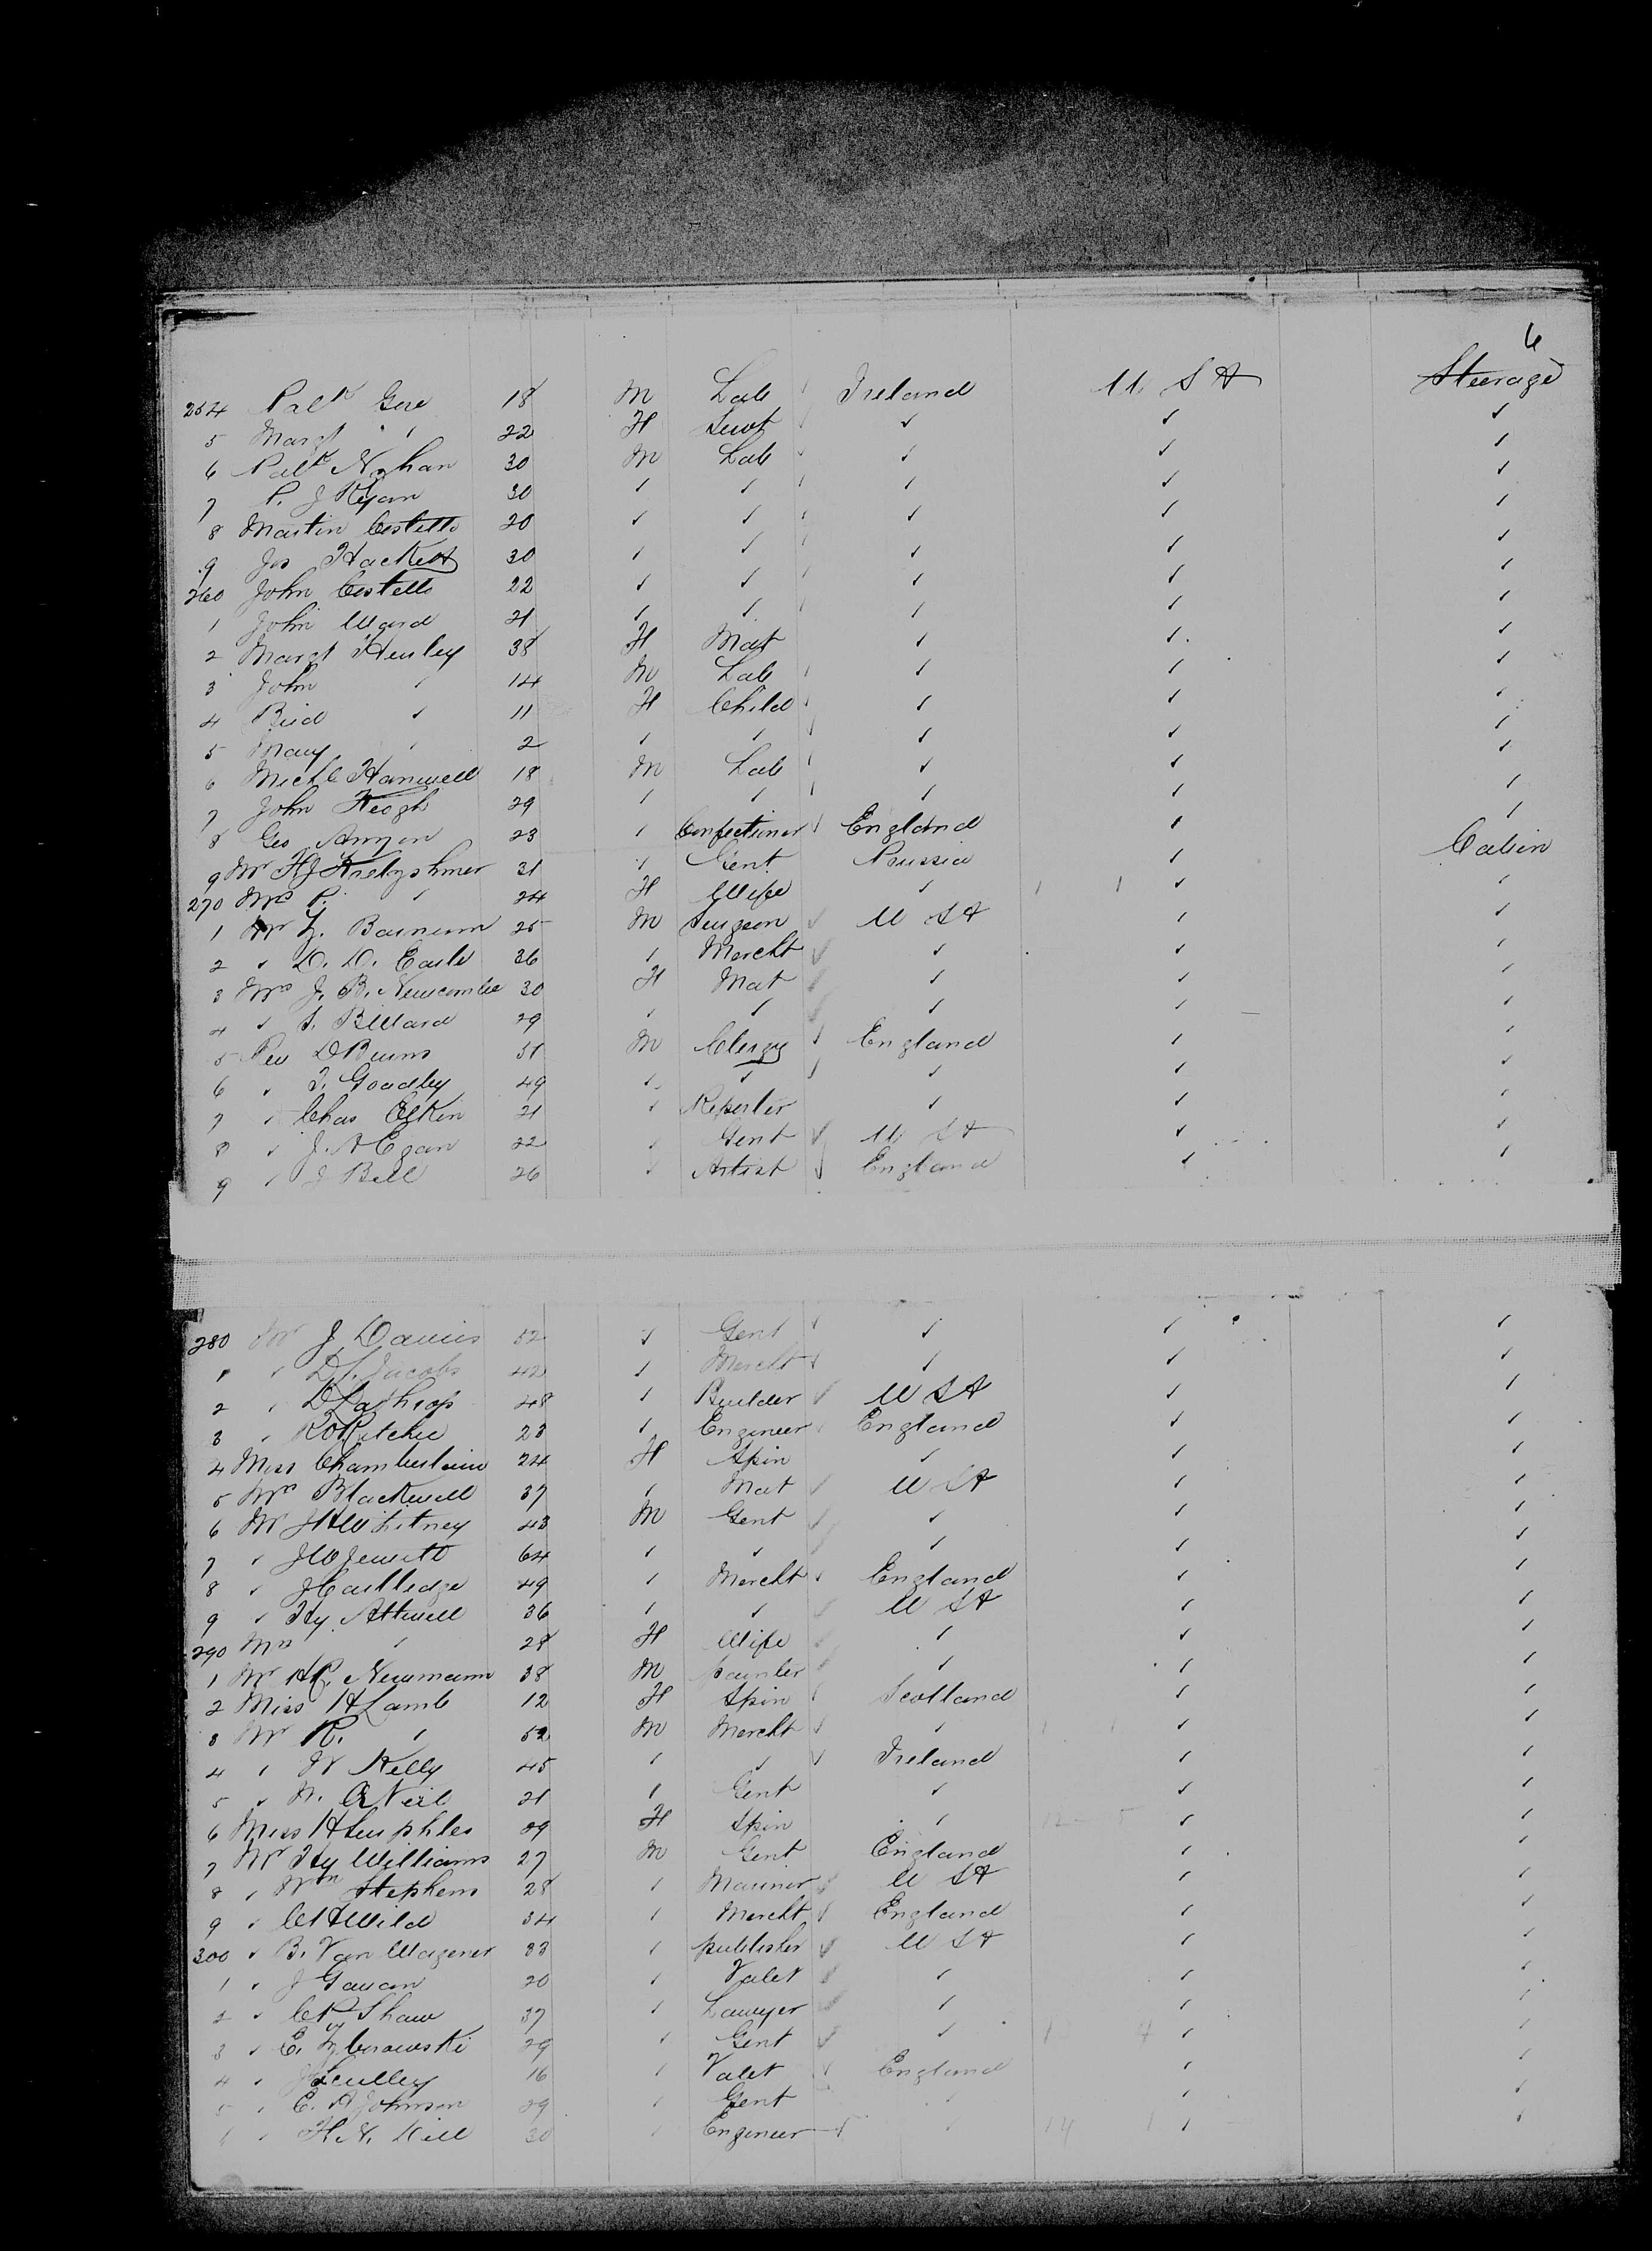 6
254 Patk Gere 18 M Lab Ireland U S A Steerage
5 Margt " 22 F Servt " " "
6 Patk Nohan 30 M Lab " " "
7 P. J Ryan 30 " " " " "
8 Martin Costello 20 " " " " "
9 Jas Hackett 30 " " " " "
260 John Costello 22 " " " " "
1 John Ward 21 " " " " "
2 Margt Henley 38 F Mat " " "
3 John " 14 M Lab " " "
4 Brid " 11 F Child " " "
5 Mary " 2 " " " " "
6 Michl Hanwell 18 M Lab " " "
7 John Keogh 29 " " " " "
8 Geo 23 " Confectioner England " "
9 Mr F J 31 " Gent Prussia " Cabin
270 Mrs P. " 24 F Wife " " "
1 Mr Z. Barnum 25 M Surgeon U S A " "
2 " D. D. Earle 36 " Mercht " " "
3 Mrs J. B. Newcombe 30 F Mat " " "
4 " S. B Ward 29 " " " " "
5 Rev D Burns 51 M Clergy England " "
6 " T. Goadby 49 " " " " "
7 " Chas Elkin 21 " Reporter " " "
8 " J. A Egan 22 " Gent U S A " "
9 " J Bell 26 " Artist England " "
280 Mr J Davies 52 " Gent " " "
1 " D L Jacobs 42 " Mercht " " "
2 " D Lathrop 48 " Builder U S A " "
3 " R O Ritchie 23 " Engineer England " "
4 Miss Chamberlain 24 F Spin " " "
5 Mrs Blackwell 37 " Mat U S A " "
6 Mr J H Whitney 43 M Gent " " "
7 " J W Jewett 64 " " " " "
8 " J Cartledge 49 " Mercht England " "
9 " Hy Attwell 36 " " U S A " "
290 Mrs " 28 F Wife " " "
1 Mr H C. Newmann 38 M painter " " "
2 Miss H Lamb 12 F Spin Scotland " "
3 Mr R. " 52 M Mercht " " "
4 " W Kelly 45 " " Ireland " "
5 " W. O Neil 21 " Gent " " "
6 Miss H 29 F Spin " " "
7 Mr Hy Williams 27 M Gent England " "
8 " Wm Stephens 28 " Mariner U S A " "
9 " C H Wild 34 " Mercht England " "
300 " B. Van Wagener 33 " publisher U S A " "
1 " J Gavan 20 " Valet " " "
2 " C P Shaw 37 " Lawyer " " "
3 " E. Zborowski 29 " Gent " " "
4 " J Sculley 16 " Valet England " "
5 " E. A Johnson 29 " Gent " " "
6 " H. N. Dill 30 " Engineer " " "